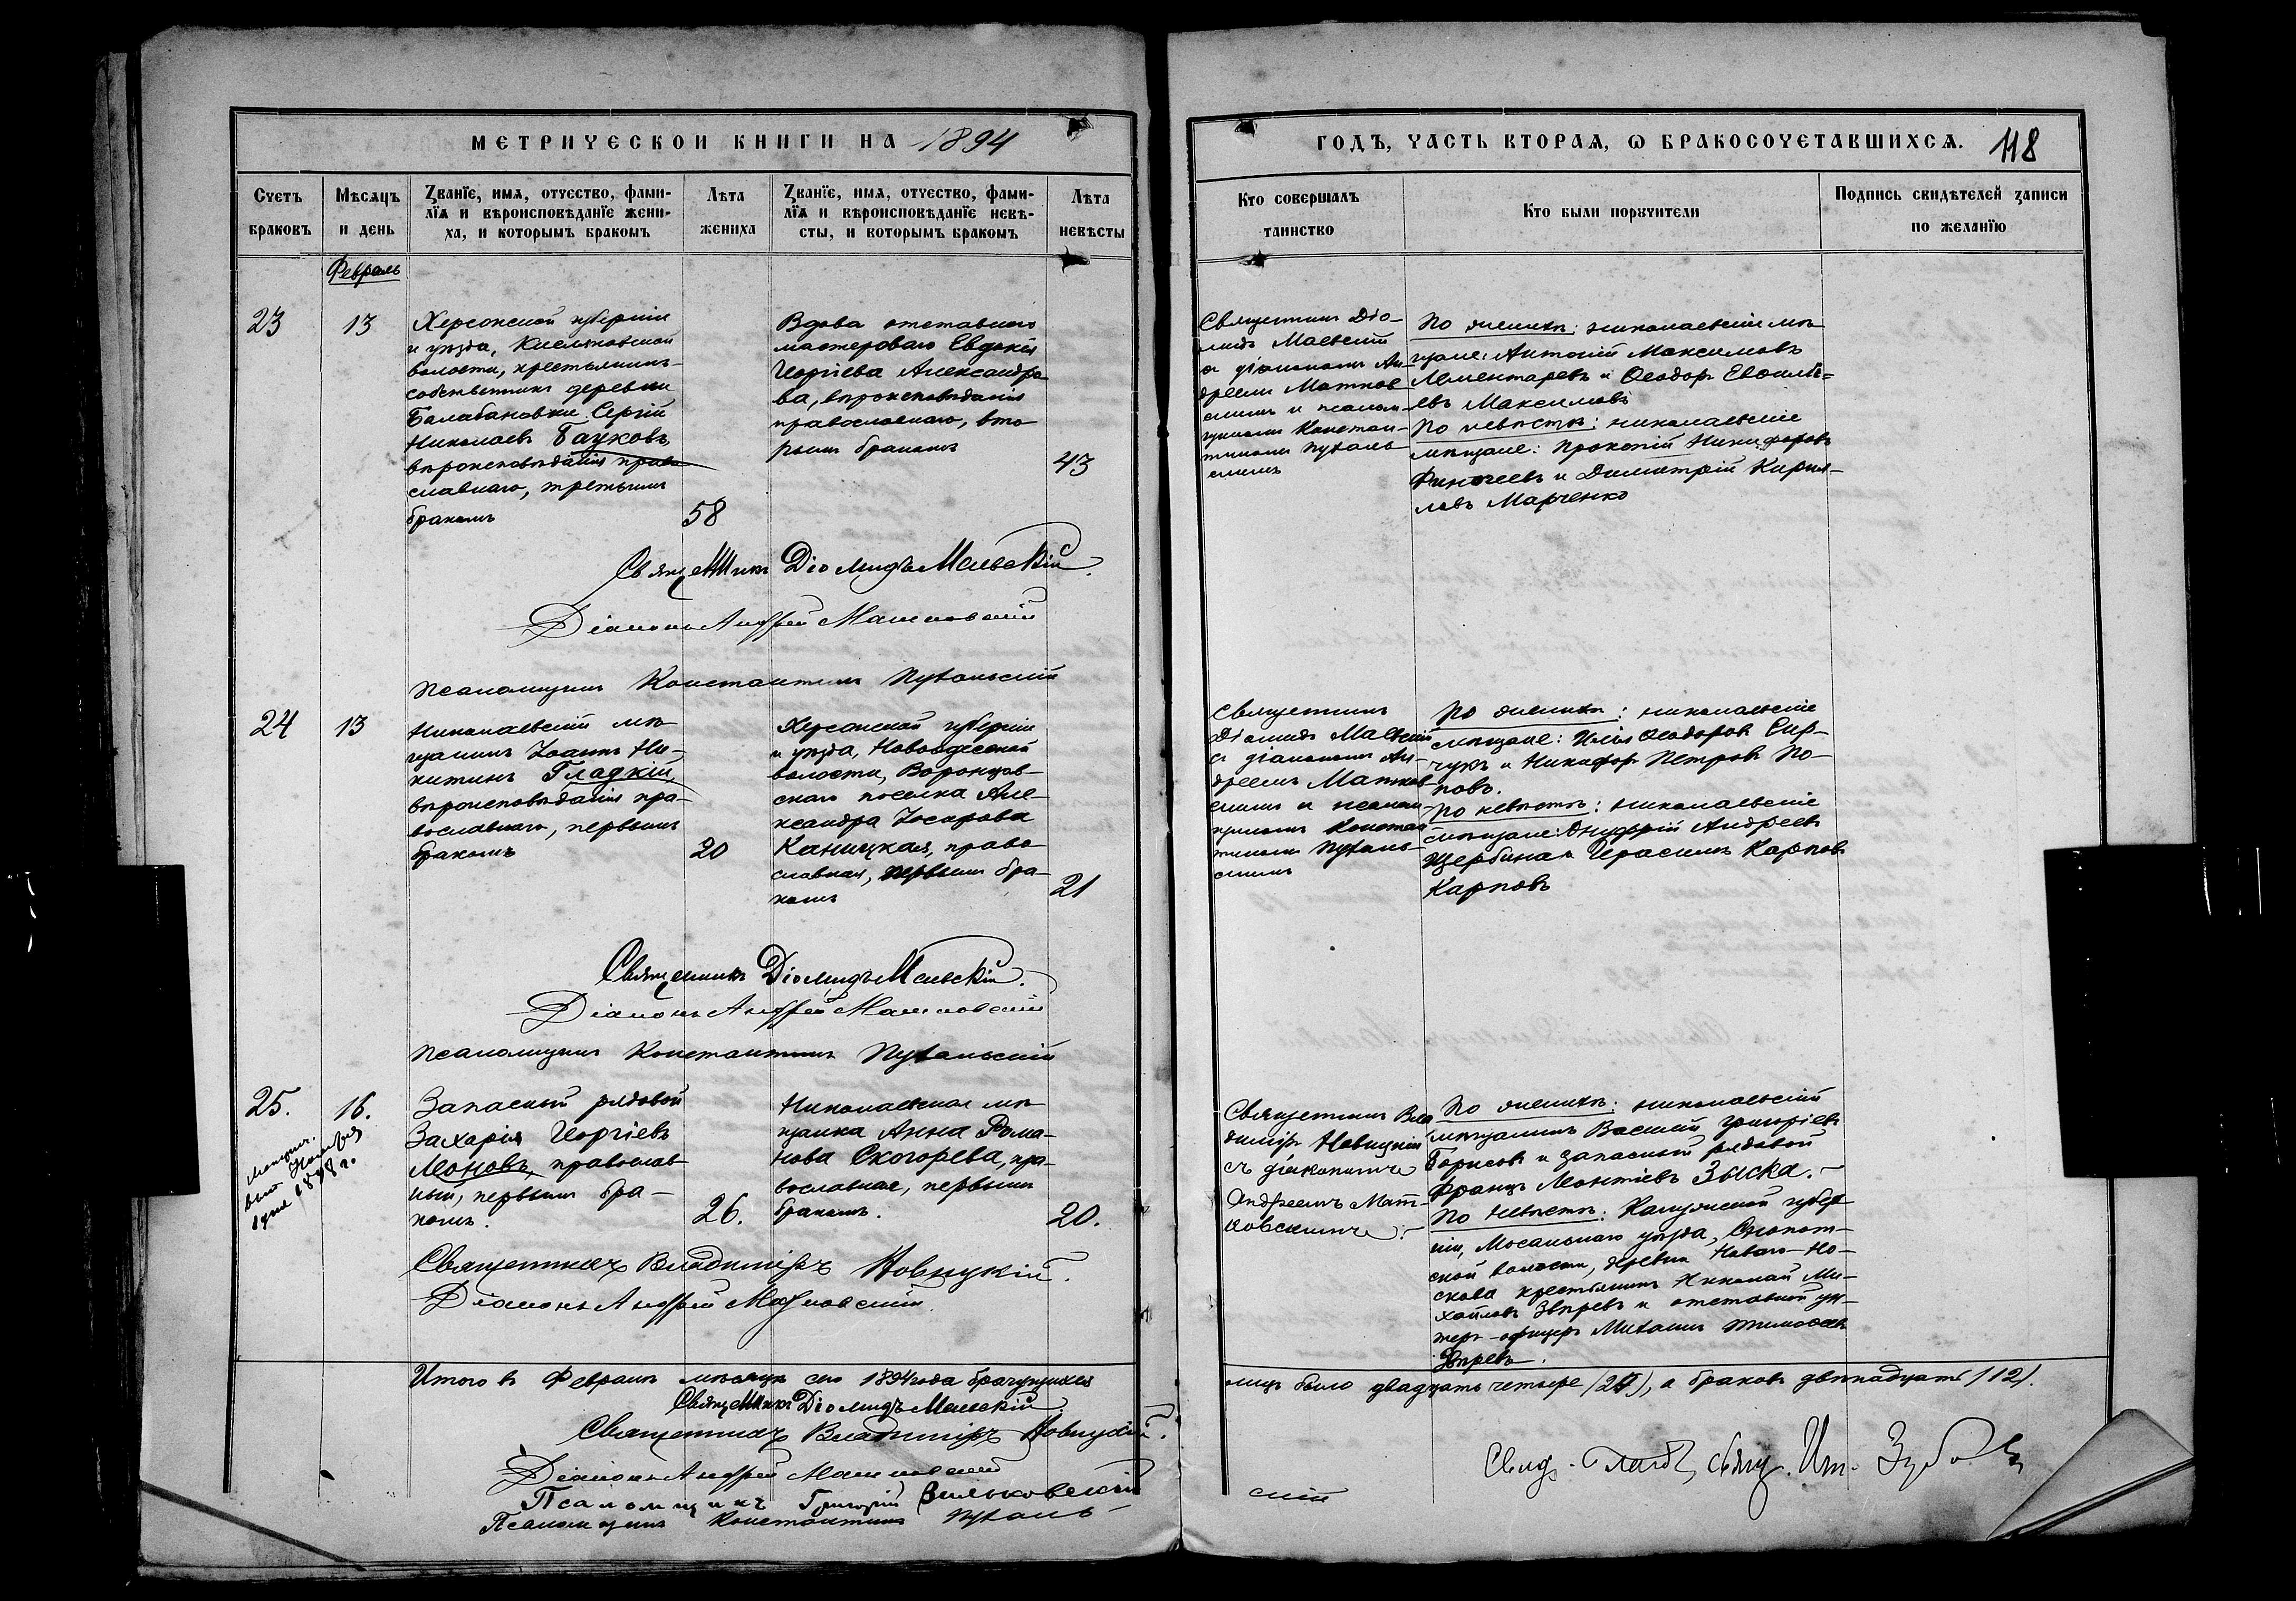 МЕТРИЧЕСКОЙ КНИГИ НА 1894
ГОДЪ, ЧАСТЬ ВТОРАЯ, Ѡ БРАКОСОЧЕТАВШИХСЯ. 118
Счетъ браковъ
Мѣсяцъ и день
Званіе, имя, отчество, фами-
лія и вѣроисповѣданіе жени-
ха, и которымъ бракомъ
Лѣта жениха
Званіе, имя, отчество, фами-
лія и вѣроисповѣданіе невѣ-
сты, и которымъ бракомъ
Лѣта невѣсты
Кто совершалъ
таинство
Кто были поручители
Подпись свидѣтелей записи
по желанію
Февраль
23
13
Херсонской губерніи
и уѣзда, Кисляковской
волости, крестьянинъ
собственникъ деревни
Балабановки Сергій
Николаевъ Бауковъ,
вѣроисповѣданія право
славнаго, третьимъ
бракомъ
58
Вдова отставнаго
мастероваго Евдокія
Георгіева Александро
ва, вѣроисповѣданія
православнаго, вто
рымъ бракомъ
43
Священникъ Діо-
мидъ Маевскій
съ діакономъ Ан-
дреемъ Матков
скимъ и псалом-
щикомъ Констан-
тиномъ Пухаль
скимъ
По женихѣ: николаевскіе мѣ
щане: Антоній Максимовъ
Лементаревъ и Ѳеодоръ Евсиѣ=
евъ Максимовъ
По невѣстѣ: николаевскіе
мѣщане: Прокопій Никифоровъ
и Димитрій Кирил-
ловъ Марченко
Священникъ Діомидъ Маевскій.
Діаконъ Андрей Матковскій
Псаломщикъ Константинъ Пухальскій
24
13
Николаевскій мѣ
щанинъ Іоаннъ Ни-
китинъ Гладкій,
вѣроисповѣданія пра-
вославнаго, первымъ
бракомъ
20
Херсонской губерніи
и уѣзда, Новоодесской
волости, Воронцов-
скаго поселка Але-
ксандра Іосифова
Каницкая, право
славная, первымъ бра-
комъ
21
Священникъ
Діомидъ Маевскій
съ діакономъ Ан-
дреемъ Матков
скимъ и псалом-
щикомъ Констан
тиномъ Пухаль
скимъ
По женихѣ: николаевскіе
мѣщане: Илія Ѳеодоровъ Сир-
чукъ и Никифоръ Петровъ По-
повъ.
По невѣстѣ: николаевскіе
мѣщане: Онуфрій Андреевъ
Щербина и Герасимъ Карповъ
Карповъ
Священникъ Діомидъ Маевскій.
Діаконъ Андрей Матковскій
Псаломщикъ Константинъ Пухальскій
25.
16.
Ноября
1898 г.
Запасный рядовой
Захарія Георгіевъ
Моновъ, православ
ный, первымъ бра-
комъ.
26.
Николаевская мѣ
щанка Анна Рома-
нова Скогорева, пра-
вославная, первымъ
бракомъ.
20.
Священникъ Вла
диміръ Новицкій
съ діакономъ
Андреемъ Мат-
ковскимъ.
По женихѣ: николаевскій
мѣщанинъ Василій Григорьевъ
Борисовъ и запасный рядовой
Францъ Леонтіевъ Зыска.
По невѣстѣ: Калужской губер
ніи, Мосальскаго уѣзда,
ской волости, деревни Новаго-Но-
скова крестьянинъ Николай Ми-
хайловъ Звѣревъ и отставной ун-
теръ-офицеръ Михаилъ Тимоѳеевъ
Звѣревъ.
Священникъ Владиміръ Новицкій.
Діаконъ Андрей Матковскій.
Итого въ Февралѣ мѣсяцѣ сего 1894 года брачущихся
лицъ было двадцать четыре (24), а браковъ двѣнадцать (12).
Священникъ Діомидъ Маевскій
Священникъ Владиміръ Новицкій.
Діаконъ Андрей Матковскій
Псаломщикъ Григорій Вильковскій
Псаломщикъ Константинъ Пухаль-
скій